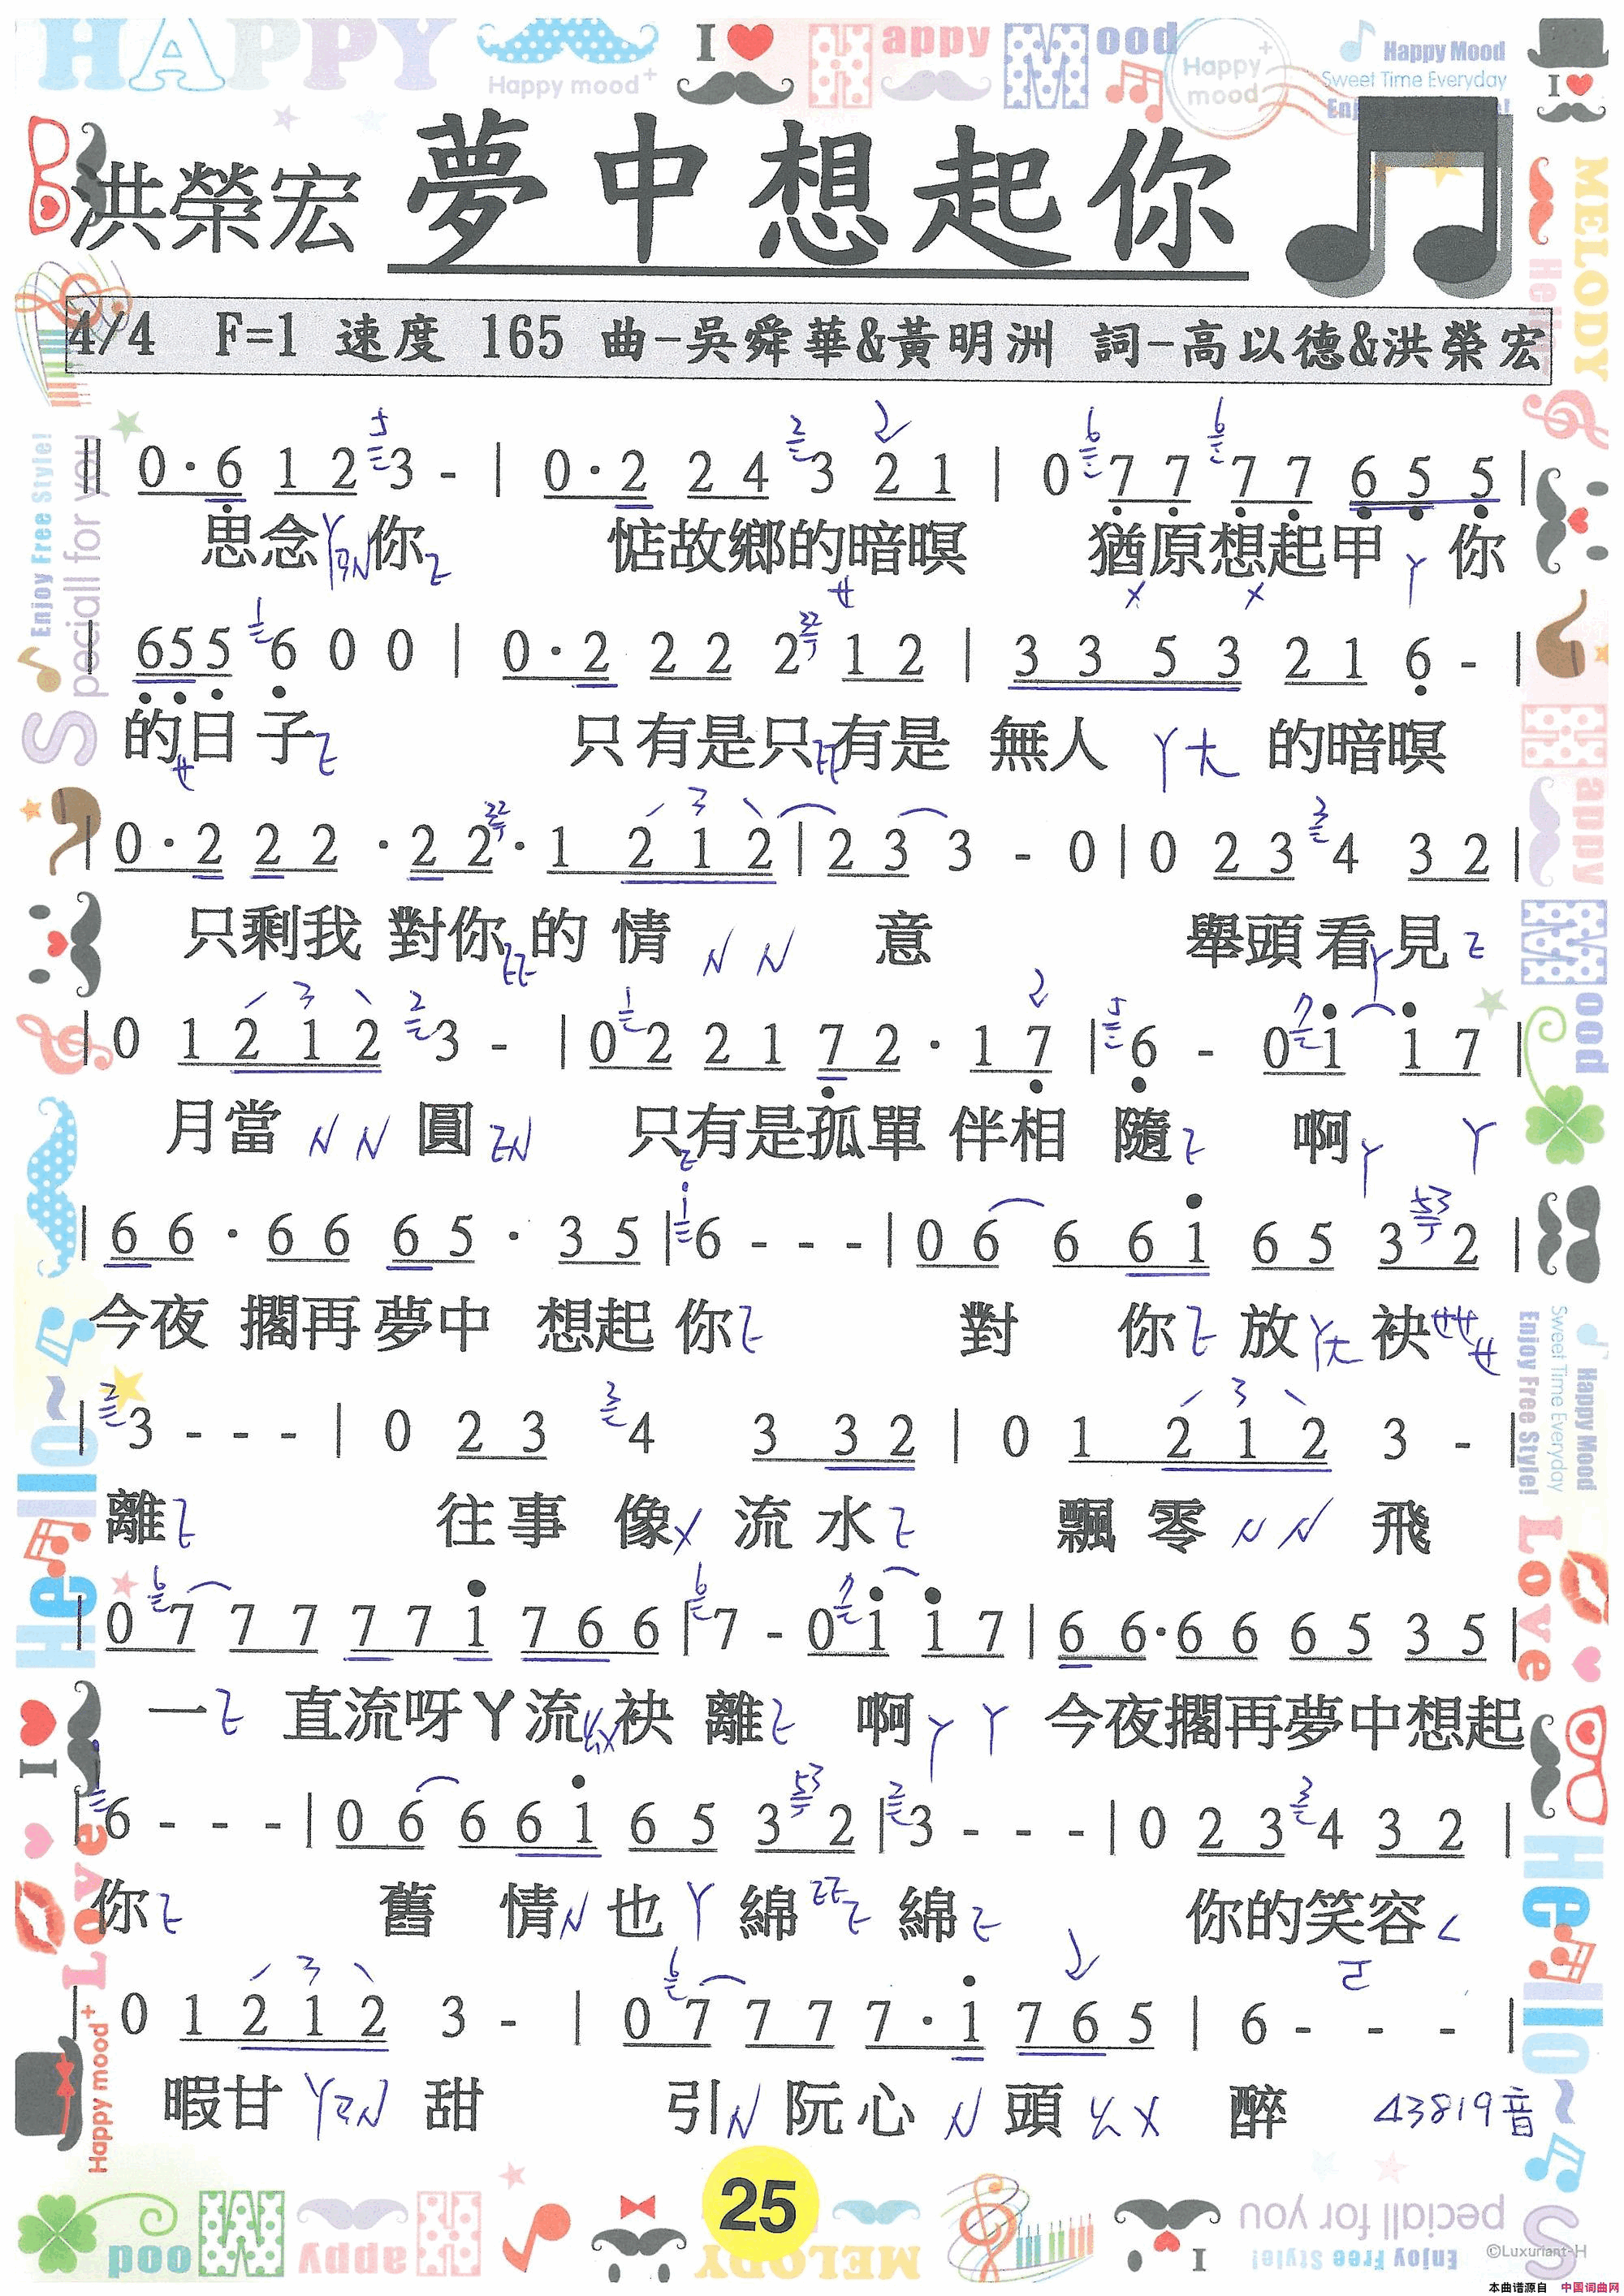 HAPPY Happy mood+ I Happy Mood Happy mood Happy Mood
Sweet Time Everyday
洪榮宏 夢中想起你
4/4 F=1 速度 165 曲-吳舜華&黃明洲 詞-高以德&洪榮宏
0·6 1 2 3 - | 0·2 2 4 3 2 1 | 0 7 7 7 7 6 5 5 |
思念 你 惦故鄉的暗暝 猶原想起甲 你
| 6 5 5 6 0 0 | 0·2 2 2 2 1 2 | 3 3 5 3 2 1 6 - |
的日子 只有是只有是 無人 的暗暝
| 0·2 2 2 ·2 2·1 2 1 2 | 2 3 3 - 0 | 0 2 3 4 3 2 |
只剩我 對你 的 情 意 舉頭看見
| 0 1 2 1 2 3 - | 0 2 2 1 7 2·1 7 | 6 - 0 1 1 7 |
月當 圓 只有是孤單 伴相 隨 啊
| 6 6·6 6 6 5·3 5 | 6 - - - | 0 6 6 6 1 6 5 3 2 |
今夜 擱再夢中 想起你 對 你 放 袂
| 3 - - - | 0 2 3 4 3 3 2 | 0 1 2 1 2 3 - |
離 往事 像 流水 飄零 飛
| 0 7 7 7 7 7 1 7 6 6 | 7 - 0 1 1 7 | 6 6·6 6 6 5 3 5 |
一 直流呀ㄚ流 袂 離 啊 今夜擱再夢中想起
| 6 - - - | 0 6 6 6 1 6 5 3 2 | 3 - - - | 0 2 3 4 3 2 |
你 舊 情 也 綿 綿 你的笑容
| 0 1 2 1 2 3 - | 0 7 7 7 7·1 7 6 5 | 6 - - - |
暇甘 甜 引 阮心 頭 醉 43819音
25
MELODY
Enjoy Free Style!
peciall for you
©Luxuriant-H
本曲谱源自 中国词曲网